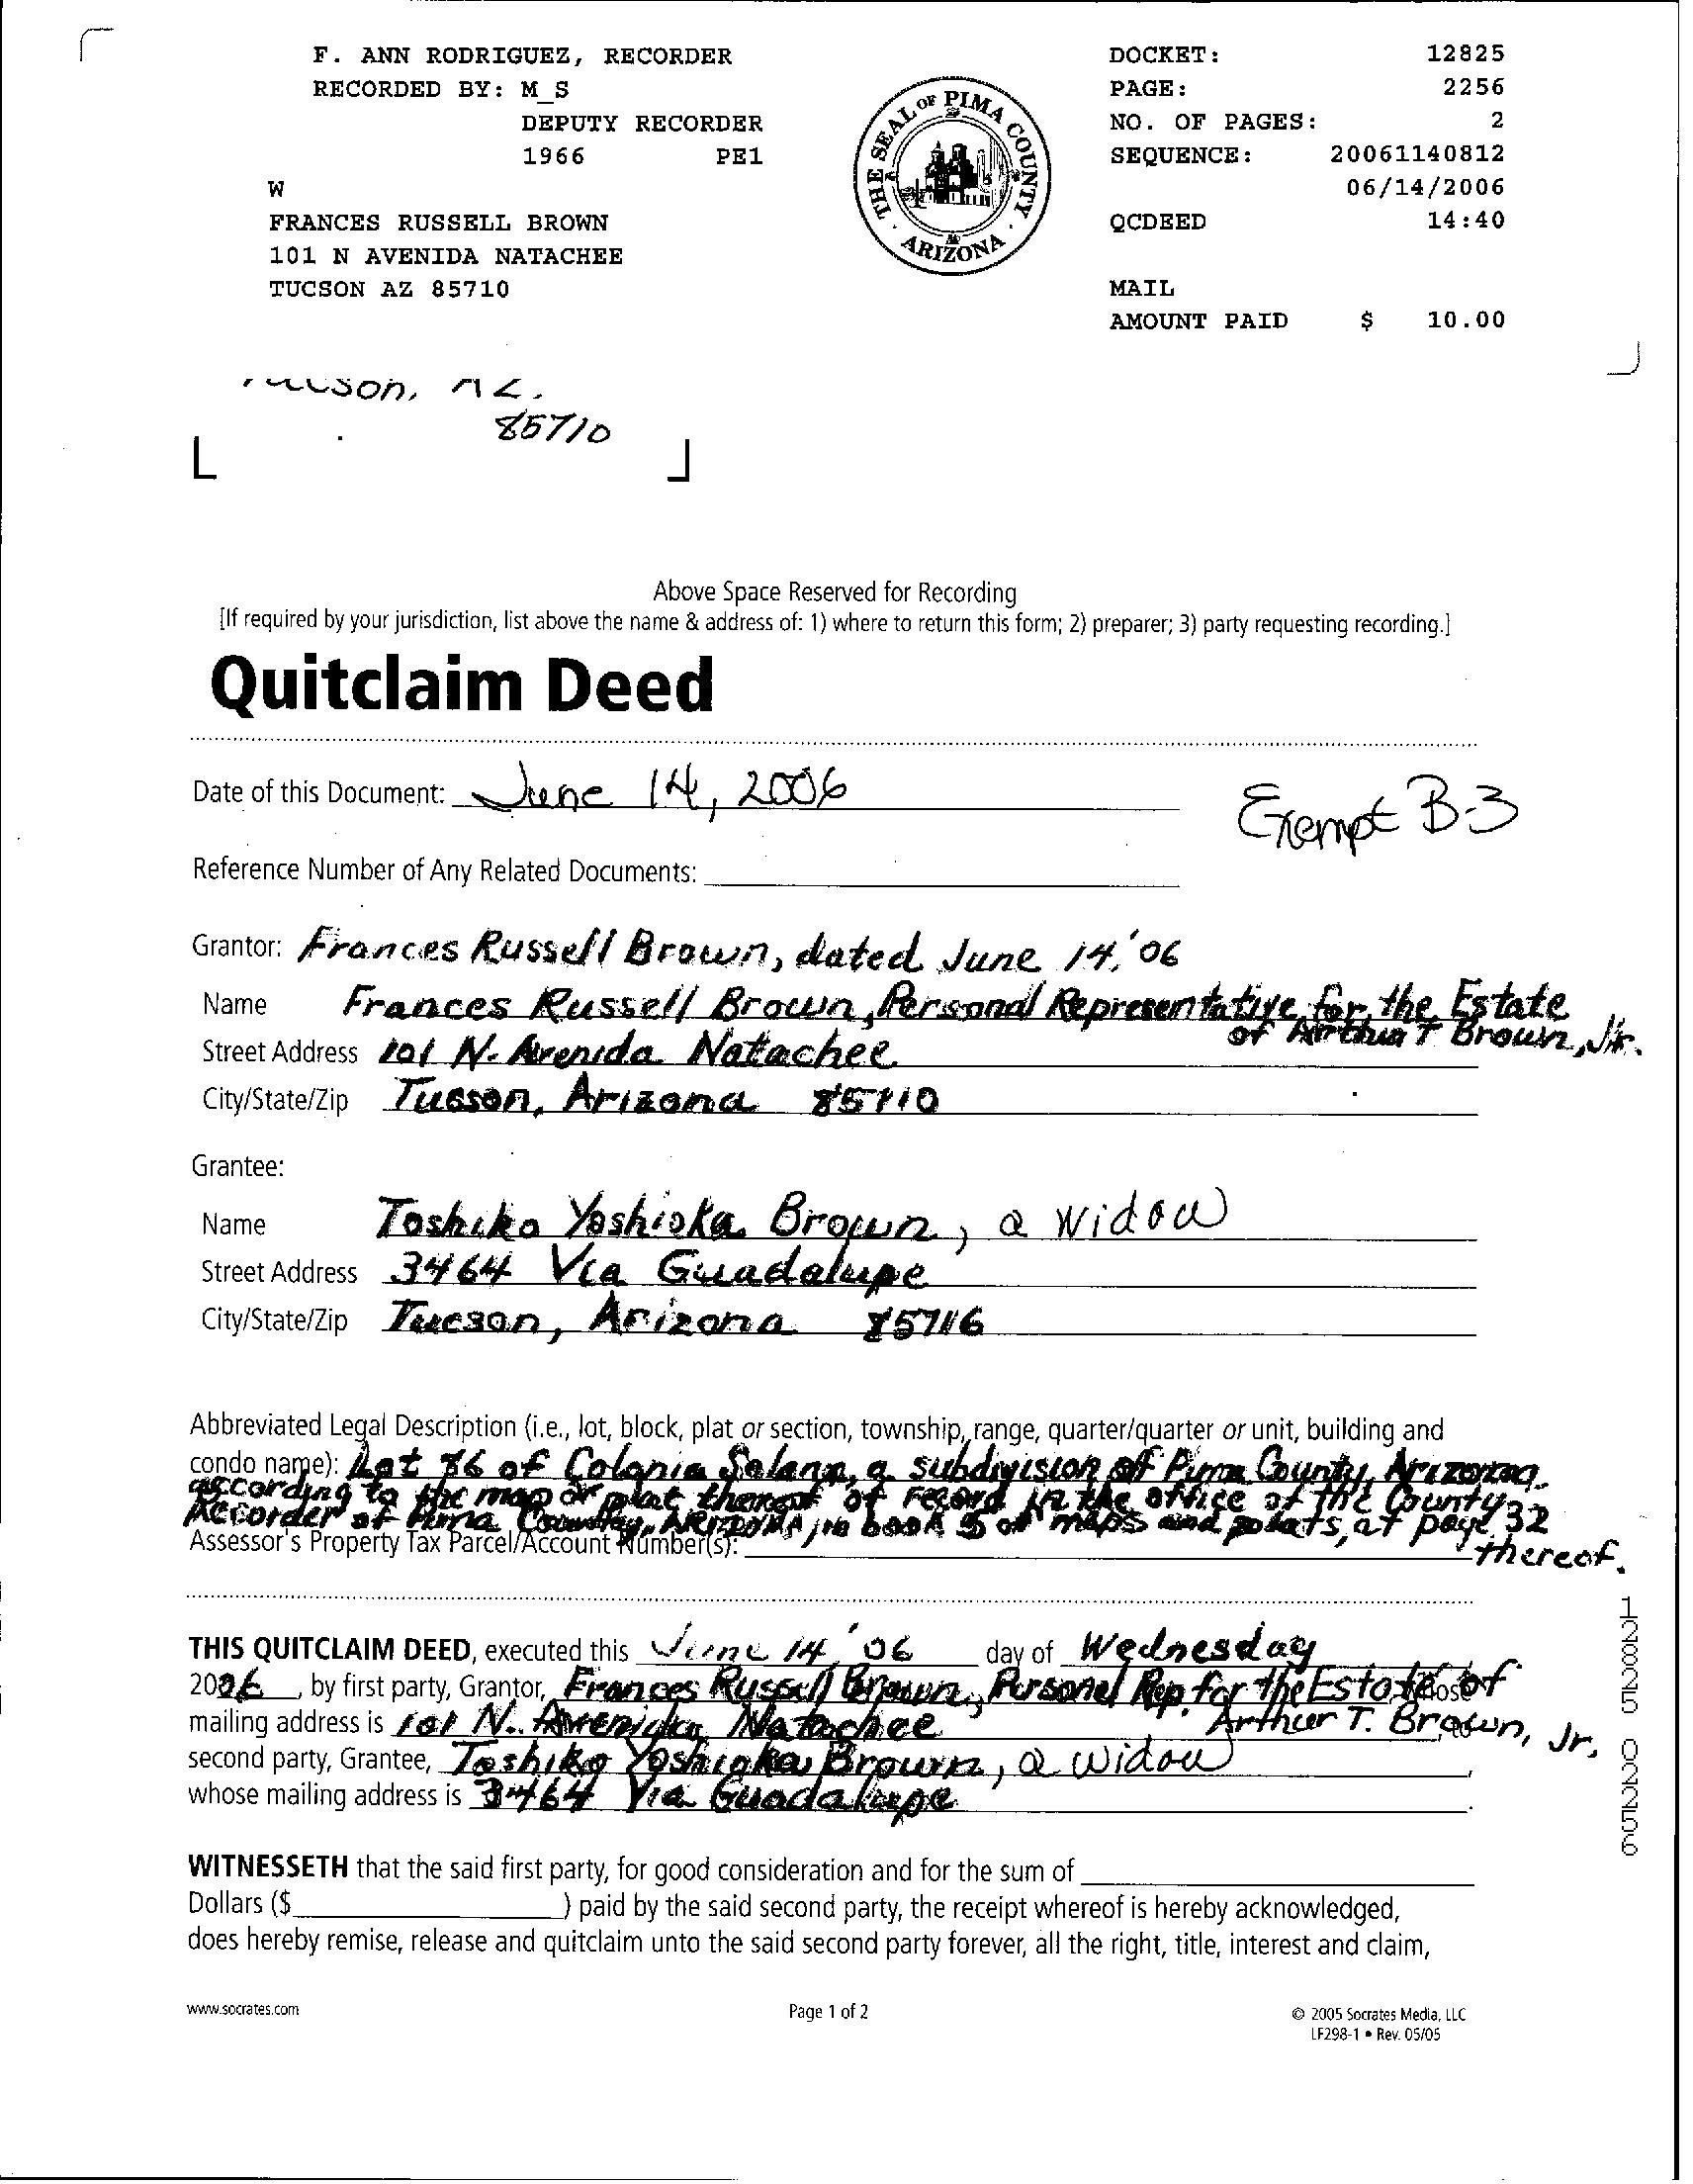 F. ANN RODRIGUEZ, RECORDER
RECORDED BY: M_S
DEPUTY RECORDER
1966 PE1
W
FRANCES RUSSELL BROWN
101 N AVENIDA NATACHEE
TUCSON AZ 85710
THE SEAL OF PIMA COUNTY
ARIZONA
DOCKET: 12825
PAGE: 2256
NO. OF PAGES: 2
SEQUENCE: 20061140812
06/14/2006
QCDEED 14:40
MAIL
AMOUNT PAID $ 10.00
Tucson, AZ.
85710
Above Space Reserved for Recording
[If required by your jurisdiction, list above the name & address of: 1) where to return this form; 2) preparer; 3) party requesting recording.]
Quitclaim Deed
Date of this Document: June 14, 2006
Exempt B-3
Reference Number of Any Related Documents:
Grantor: Frances Russell Brown, dated June 14, '06
Name Frances Russell Brown, Personal Representative for the Estate
of Arthur T Brown, Jr.
Street Address 101 N. Avenida Natachee
City/State/Zip Tucson, Arizona 85710
Grantee:
Name Toshiko Yoshioka Brown, a widow
Street Address 3464 Via Guadalupe
City/State/Zip Tucson, Arizona 85716
Abbreviated Legal Description (i.e., lot, block, plat or section, township, range, quarter/quarter or unit, building and
condo name): Lot 86 of Colonia Solana, a subdivision of Pima County, Arizona,
according to the map or plat thereof of record in the office of the County
Recorder of Pima County, ARIZONA, in book 5 of maps and plats, at page 32
thereof.
Assessor's Property Tax Parcel/Account Number(s):
THIS QUITCLAIM DEED, executed this June 14, '06 day of Wednesday
2006, by first party, Grantor, Frances Russell Brown, Personel Rep. for the Estate of whose
Arthur T. Brown, Jr,
mailing address is 101 N. Avenida Natachee, to
second party, Grantee, Toshiko Yoshioka Brown, a widow,
whose mailing address is 3464 Via Guadalupe.
WITNESSETH that the said first party, for good consideration and for the sum of
Dollars ($ ) paid by the said second party, the receipt whereof is hereby acknowledged,
does hereby remise, release and quitclaim unto the said second party forever, all the right, title, interest and claim,
12825 02256
www.socrates.com
Page 1 of 2
© 2005 Socrates Media, LLC
LF298-1 • Rev. 05/05